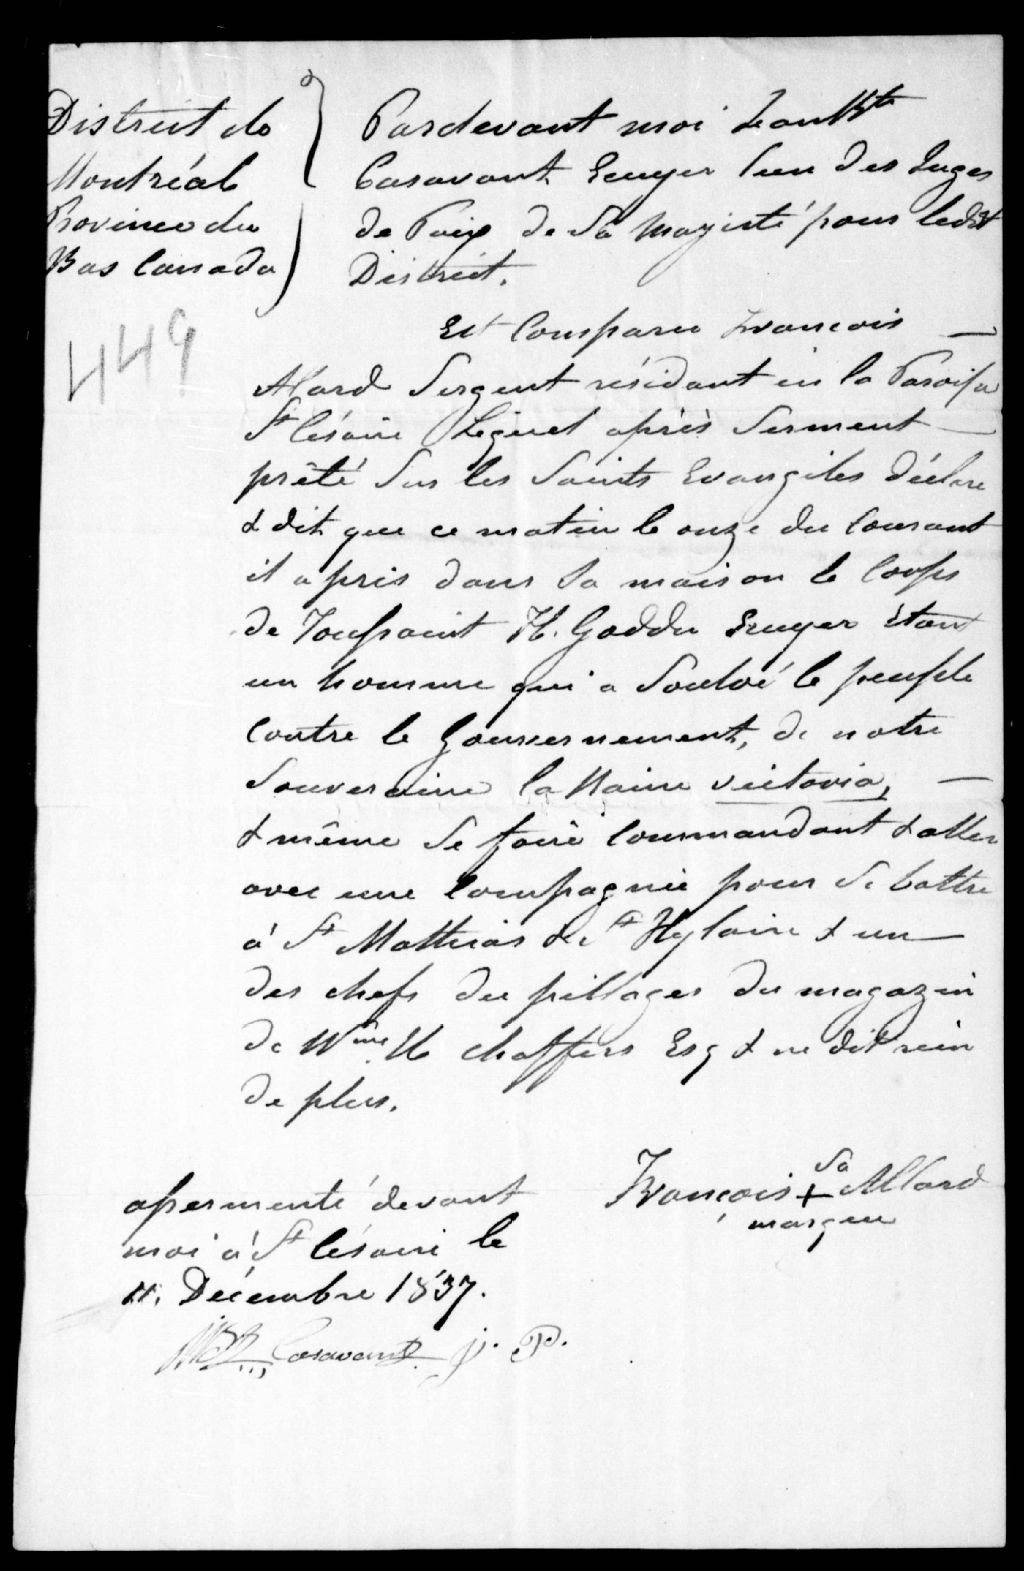 District de
Montréal
Province du
Bas Canada
449
Pardevant moi Jean Bte
Casavant Ecuyer l'un des Juges
de Paix de Sa Majesté pour ledit
District.
Est Comparu François
Alard Sergent résidant en la Paroisse
St Césaire Lequel après Serment
prêté Sur les Saints Evangiles déclare
& dit que ce matin le onze du Courant
il a pris dans Sa maison le Corps
de Toussaint H. Goddu Ecuyer étant
un homme qui a Soulvé le peuple
Contre le Gouvernement, de notre
Souveraine la Raine Victoria,
& même Se faire Commandant & aller
avec une Compagnie pour Se battre
à St Mathias & St Hylaire & un
des chefs du pillages du magazin
de Wme H Chaffers Esq & ne dit rien
de plus.
assermenté devant
moi à St Césaire le
11. Décembre 1837.
Casavant j. P.
Sa
François + Allard
marque